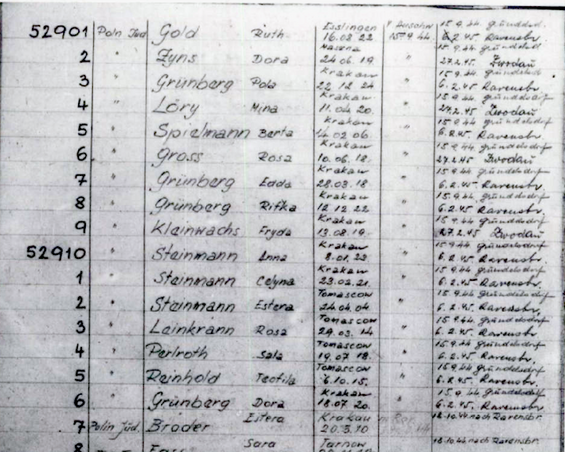 52901 Poln Jüd Gold Ruth Eislingen 16.08 22 v Auschw 15 9.44 15 9.44. Gründdsd. 6.2.45 Ravensbr.
2 " Zyns Dora 24 06. 19 " 15 9.44. Gründelsd 27.2.45. Zwodau
3 " Grünberg Pola Krakau 22 12 24 " 15 9.44. Gründelsd 6.2.45 Ravensbr.
4 " Löry Mina Krakau 11.04 20. " 15 9.44. Gründelsdorf 27.2.45 Zwodau
5 " Spielmann Berta Krakau 14 02 06. " 15 9.44. Gründelsdorf 6.2.45. Ravensbr.
6 " Gross Rosa Krakau 10.06.18. " 15 9.44. Gründelsdorf 27.2.45 Zwodau
7 " Grünberg Krakau 28.03.18 " 15 9.44. Gründelsdorf 6.2.45 Ravensbr.
8 " Grünberg Rifka Krakau 12 12 22 " 15 9.44. Gründelsdorf 6.2.45 Ravensbr.
9 " Kleinwachs Fryda Krakau 13.08 19. " 15 9.44. Gründelsdorf 27.2.45. Zwodau
52910 " Steinmann Anna Krakau 8.01.23 " 15 9.44. Gründelsdorf 6.2.45 Ravensbr.
1 " Steinmann Celyna Krakau 23.02.21. " 15 9.44. Gründelsdorf 6.2.45. Ravensbr.
2 " Steinmann Estera Tomascow 24.04.04 " 15 9.44. Gründelsdorf 6.2.45. Ravensbr.
3 " Leinkrann Rosa Tomascow 29.03. 14 " 15 9.44. Gründelsdorf 6.2.45. Ravensbr.
4 " Perlroth Sala Tomascow 19.07 18. " 15 9.44. Gründelsdorf 6.2.45. Ravensbr.
5 " Reinhold Teofila Tomascow 6.10.15. " 15 9.44. Gründelsdorf 6.2.45. Ravensbr.
6 " Grünberg Dora Krakau 18.07 20. " 15 9 44. Gründelsdorf 6.2.45. Ravensbr.
7 Polin Jüd. Broder Estera Krakau 20.3.10 18.10.44 nach Ravensbr.
8 Sara Tarnow 18.10 44 nach Ravensbr.